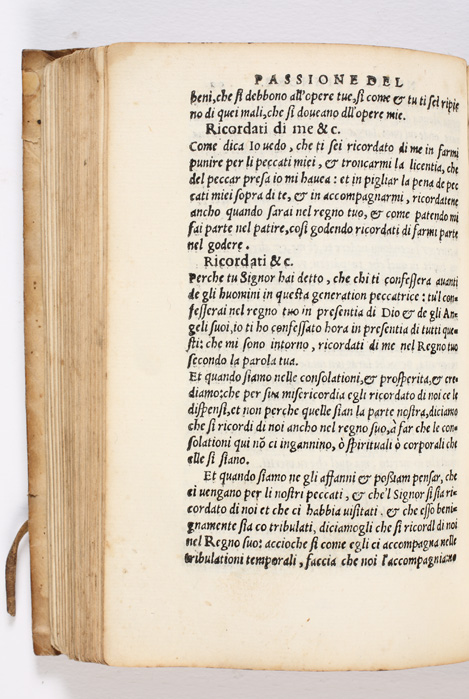 PASSIONE DEL
beni, che si debbono all'opere tue, si come & tu ti sei ripie
no di quei mali, che si doueano all'opere mie.
Ricordati di me &c.
Come dica Io uedo, che ti sei ricordato di me in farmi
punire per li peccati miei, & troncarmi la licentia, che
del peccar presa io mi hauea: et in pigliar la pena de pec
cati miei sopra di te, & in accompagnarmi, ricordatene
ancho quando sarai nel regno tuo, & come patendo mi
fai parte nel patire, così godendo ricordati di farmi parte
nel godere.
Ricordati &c.
Perche tu Signor hai detto, che chi ti confessera auanti
de gli huomini in questa generation peccatrice: tu'l con-
fesserai nel regno tuo in presentia di Dio & de gli An-
geli suoi, io ti ho confessato hora in presentia di tutti que-
sti: che mi sono intorno, ricordati di me nel Regno tuo
secondo la parola tua.
Et quando siamo nelle consolationi, & prosperita, & cre-
diamo: che per sua misericordia egli ricordato di noi ce le
dispensi, et non perche quelle sian la parte nostra, diciamo
che si ricordi di noi ancho nel regno suo, à far che le con-
solationi qui nõ ci ingannino, ò spirituali ò corporali che
elle si siano.
Et quando siamo ne gli affanni & possiam pensar, che
ci uengano per li nostri peccati, & che'l Signor si sia ri-
cordato di noi et che ci habbia uisitati, & che esso beni-
gnamente sia co tribulati, diciamogli che si ricordi di noi
nel Regno suo: accioche si come egli ci accompagna nelle
tribulationi temporali, faccia che noi l'accompagniamo